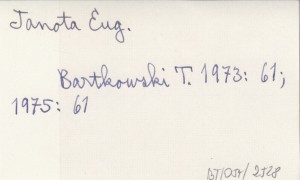 Janota Eug.
Bartkowski T. 1973: 61;
1975: 61
BT/OST/2528